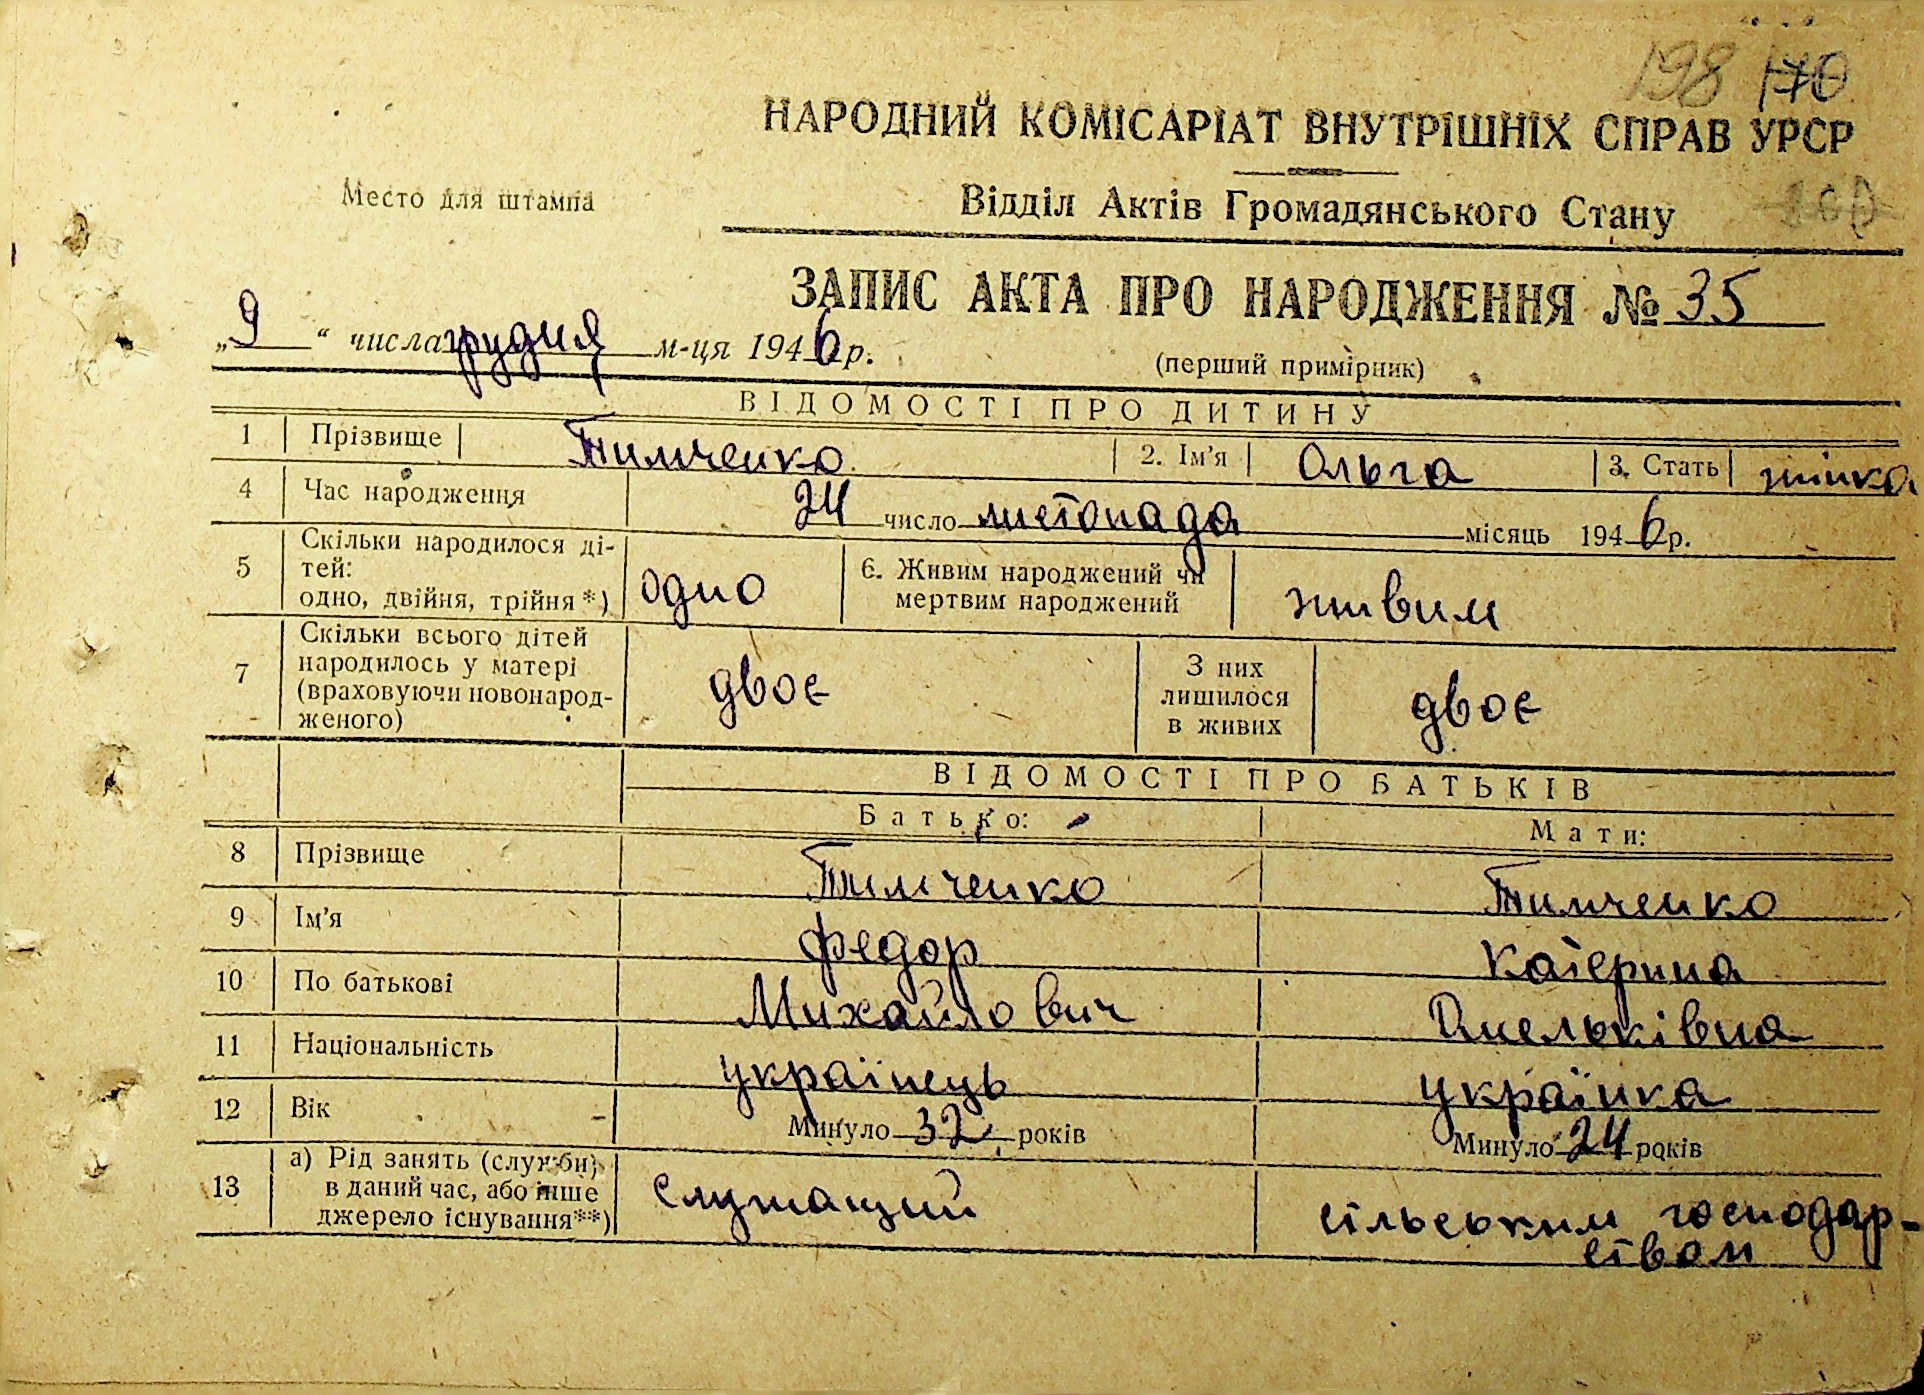 198 170
НАРОДНИЙ КОМІСАРІАТ ВНУТРІШНІХ СПРАВ УРСР
Место для штампа
Відділ Актів Громадянського Стану
ЗАПИС АКТА ПРО НАРОДЖЕННЯ № 35
„9“ числа грудня м-ця 1946 р.
(перший примірник)
ВІДОМОСТІ ПРО ДИТИНУ
1 Прізвище Тимченко 2. Ім'я Ольга 3. Стать жінка
4 Час народження 24 число листопада місяць 1946 р.
5 Скільки народилося ді-
тей:
одно, двійня, трійня*) одно 6. Живим народжений чи
мертвим народжений живим
7 Скільки всього дітей
народилось у матері
(враховуючи новонарод-
женого) двоє З них
лишилося
в живих двоє
ВІДОМОСТІ ПРО БАТЬКІВ
Батько: Мати:
8 Прізвище Тимченко Тимченко
9 Ім'я Федор Катерина
10 По батькові Михайлович Омельківна
11 Національність українець українка
12 Вік Минуло 32 років Минуло 24 років
13 а) Рід занять (служби)
в даний час, або інше
джерело існування**) служащий сільським господар-
ством